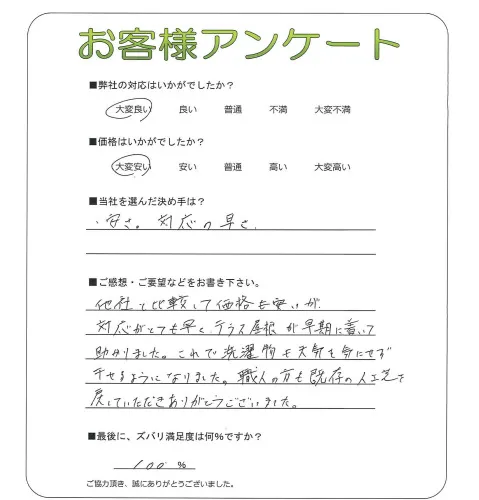 お客様アンケート
■弊社の対応はいかがでしたか？
大変良い 良い 普通 不満 大変不満
■価格はいかがでしたか？
大変安い 安い 普通 高い 大変高い
■当社を選んだ決め手は？
・安さ。対応の早さ。
■ご感想・ご要望などをお書き下さい。
他社と比較して価格も安いが、
対応がとても早く、テラス屋根が早期に着いて
助かりました。これで洗濯物も天気を気にせず
干せるようになりました。職人の方も既存の人工芝を
戻していただきありがとうございました。
■最後に、ズバリ満足度は何%ですか？
100 %
ご協力頂き、誠にありがとうございました。